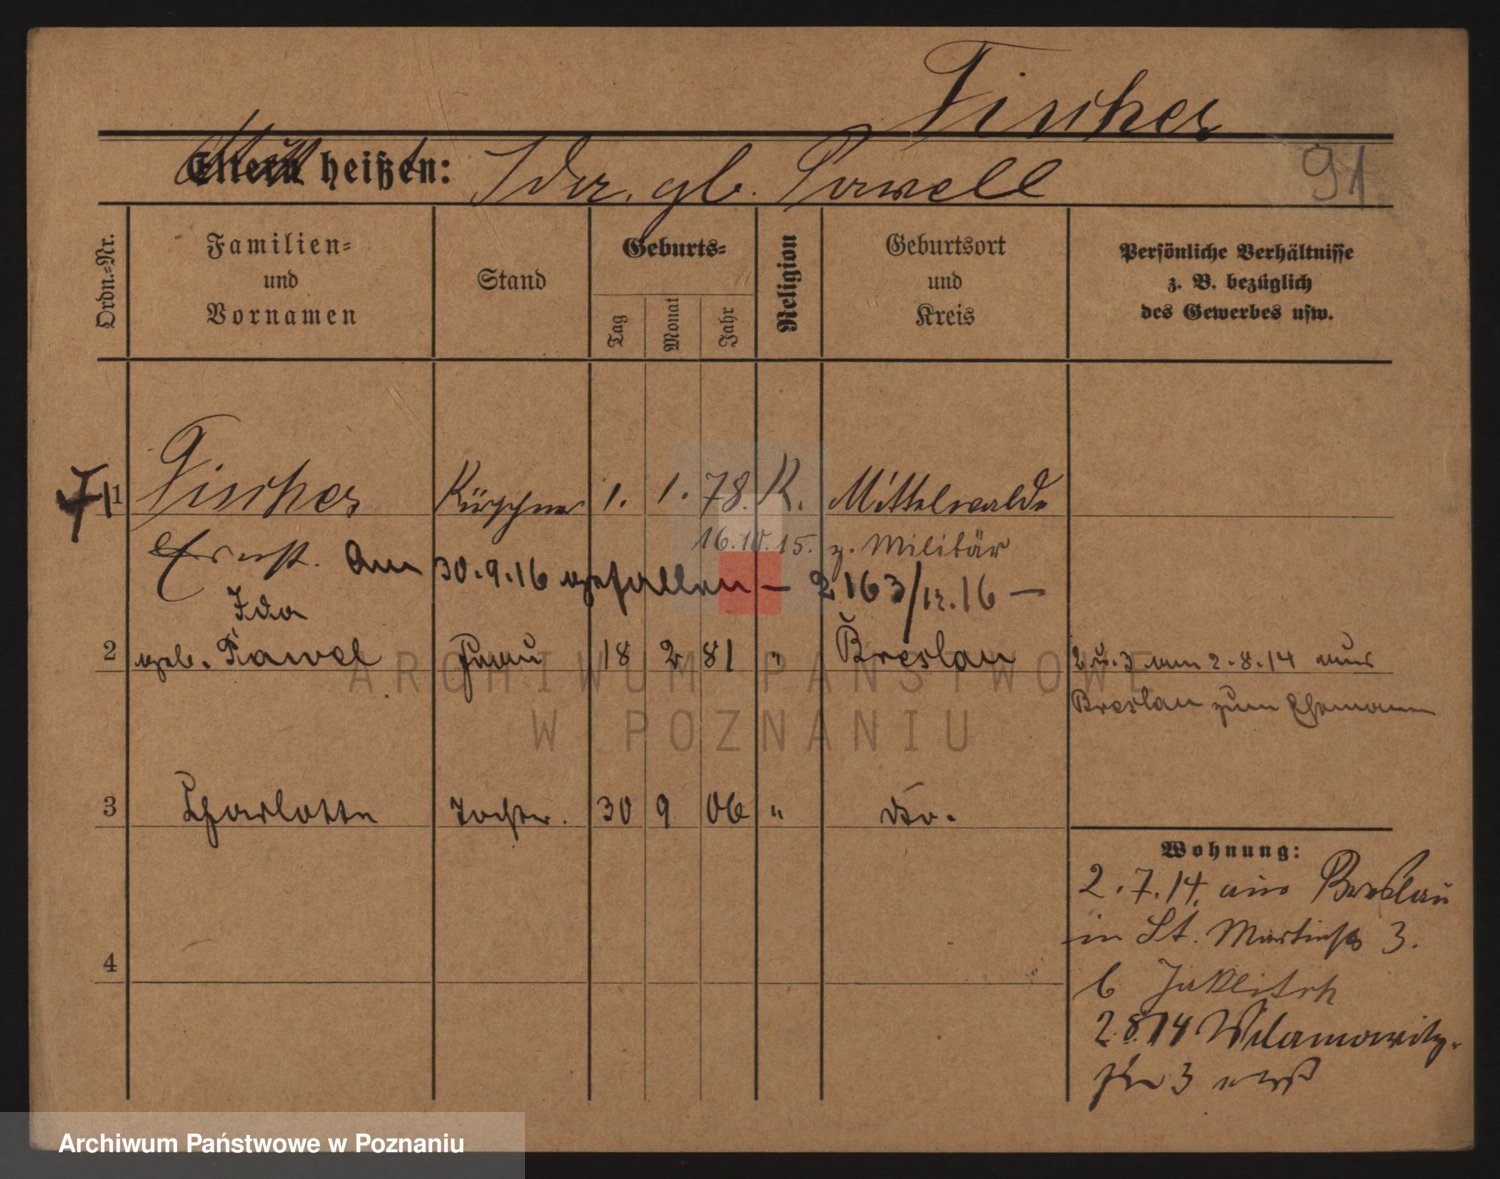 Fischer
91.
Eltern heißen: Ida. gb. Pawell
Ordn.-Nr.
Familien-
und
Vornamen
Stand
Geburts-
Tag
Monat
Jahr
Religion
Geburtsort
und
Kreis
Persönliche Verhältnisse
z. B. bezüglich
des Gewerbes usw.
1 Fischer Kürschner 1. 1. 78. K. Mittelwalde
16.10.15. z. Militär
Ernst. Am 30.9.16 gefallen — 2163/12.16 —
Ida
2 geb. Pawel Frau 18 2 81 " Breslau 2 u. 3 am 2.8.14 aus
Breslau zum Ehemann
3 Charlotte Tochter. 30 9 06 " dto.
4
Wohnung:
2.7.14. aus Breslau
in St. Martinstr 3.
b
2.8.14 Wilamowitz-
str 3
ARCHIWUM PAŃSTWOWE
W POZNANIU
Archiwum Państwowe w Poznaniu